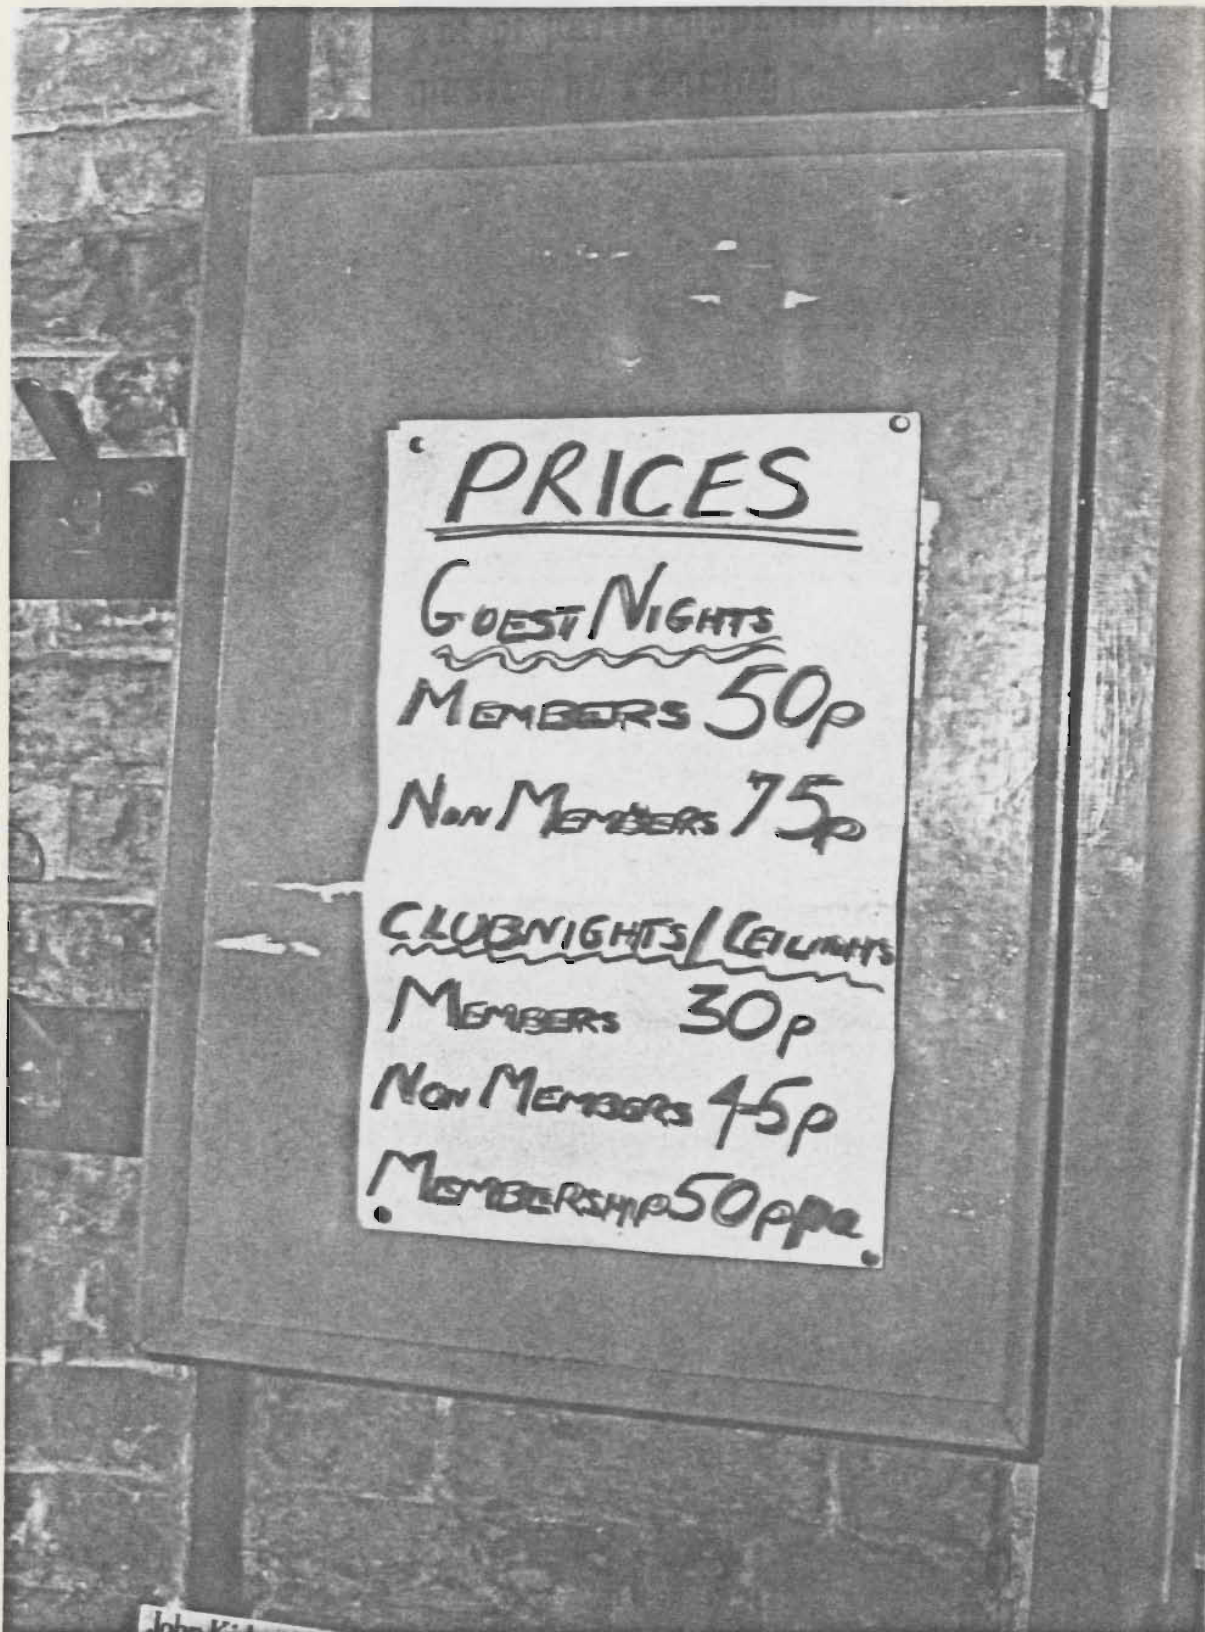 PRICES
GUEST NIGHTS
MEMBERS 50p
NON MEMBERS 75p
CLUBNIGHTS/CEILIDHS
MEMBERS 30p
NON MEMBERS 45p
MEMBERSHIP 50ppa
John